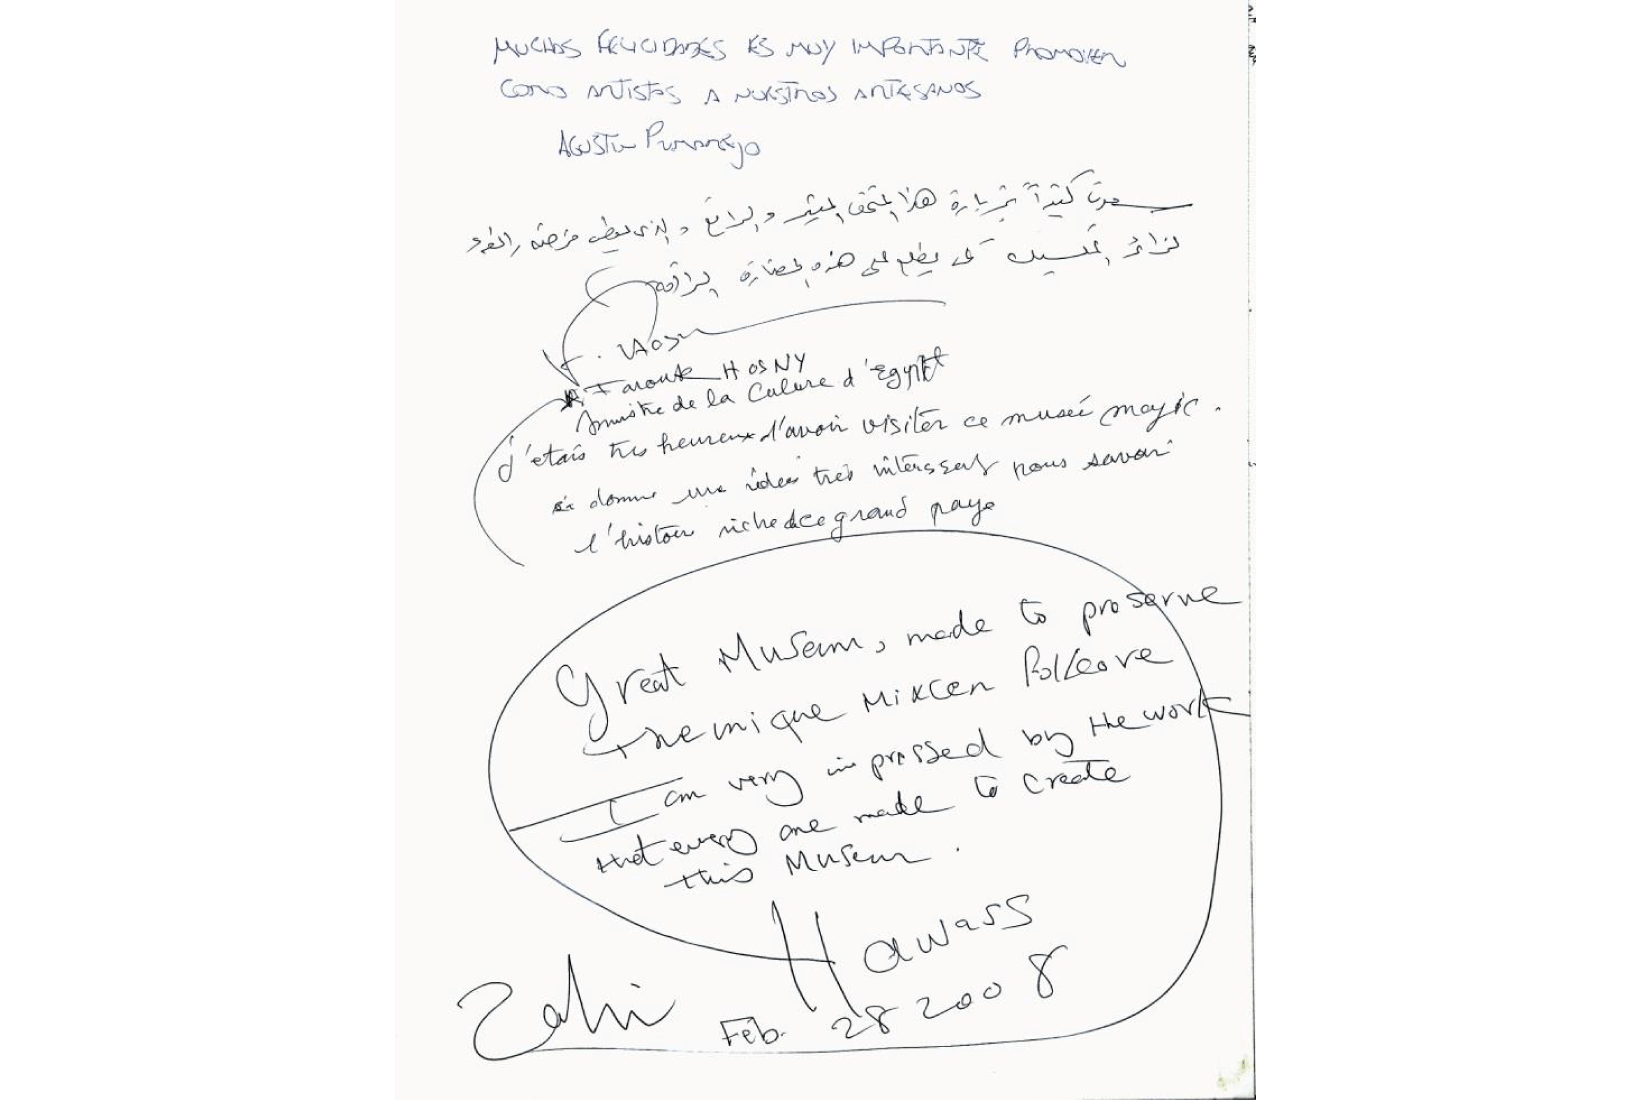 MUCHAS FELICIDADES ES MUY IMPORTANTE PROMOVER
COMO ARTISTAS A NUESTROS ARTESANOS
AGUSTIN
سعدت كثيراً بزيارة هذا المتحف المثير والرائع والذى يعطى فرصة
لزائر المكسيك كى يطلع على هذه الحضارة الراقية
F. Hosny
Farouk HOSNY
Ministre de la Culure d'Egypt
J'etais tres heureux d'avoir visiter ce museé magic.
donne une idée trés intèressent pour savoir
l'histoire riche de ce grand pays
Great Museum, made to preserve
the unique Mixcen Folleove
I am very impressed by the work
that every one made to create
this Museum.
Zahi Hawass
Feb. 28 2008